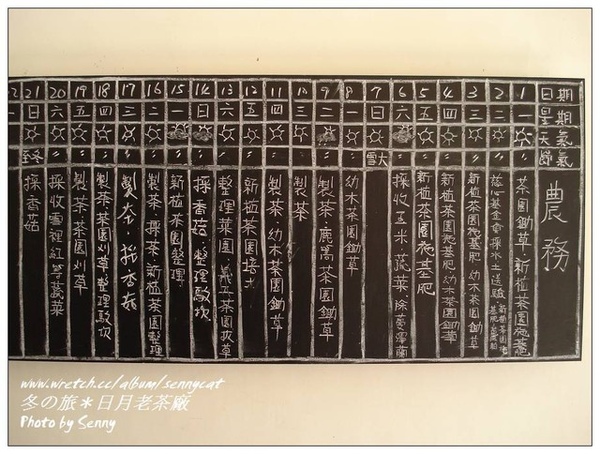 日期 1 2 3 4 5 6 7 8 9 10 11 12 13 14 15 16 17 18 19 20 21
星期 一 二 三 四 五 六 日 一 二 三 四 五 六 日 一 二 三 四 五 六 日
天氣
節氣 大雪 冬至
農務
茶園鋤草.新植茶園施基肥
慈心基金會採水土送驗
新植茶園施基肥.幼木茶園鋤草
新植茶園施基肥.幼木茶園鋤草
新植茶園施基肥
採收玉米.蔬菜.除蔓澤蘭
幼木茶園鋤草
製茶.鹿窩茶園鋤草
製茶
製茶.幼木茶園鋤草
新植茶園培土
整理菜園.義工茶園拔草
採香菇.整理駁坎
新植茶園整理
製茶.採茶.新植茶園整理
製茶.採香菇
製茶.茶園刈草整理駁坎
製茶.茶園刈草
採收雪裡紅等蔬菜
採香菇
www.wretch.cc/album/sennycat
冬の旅＊日月老茶廠
Photo by Senny